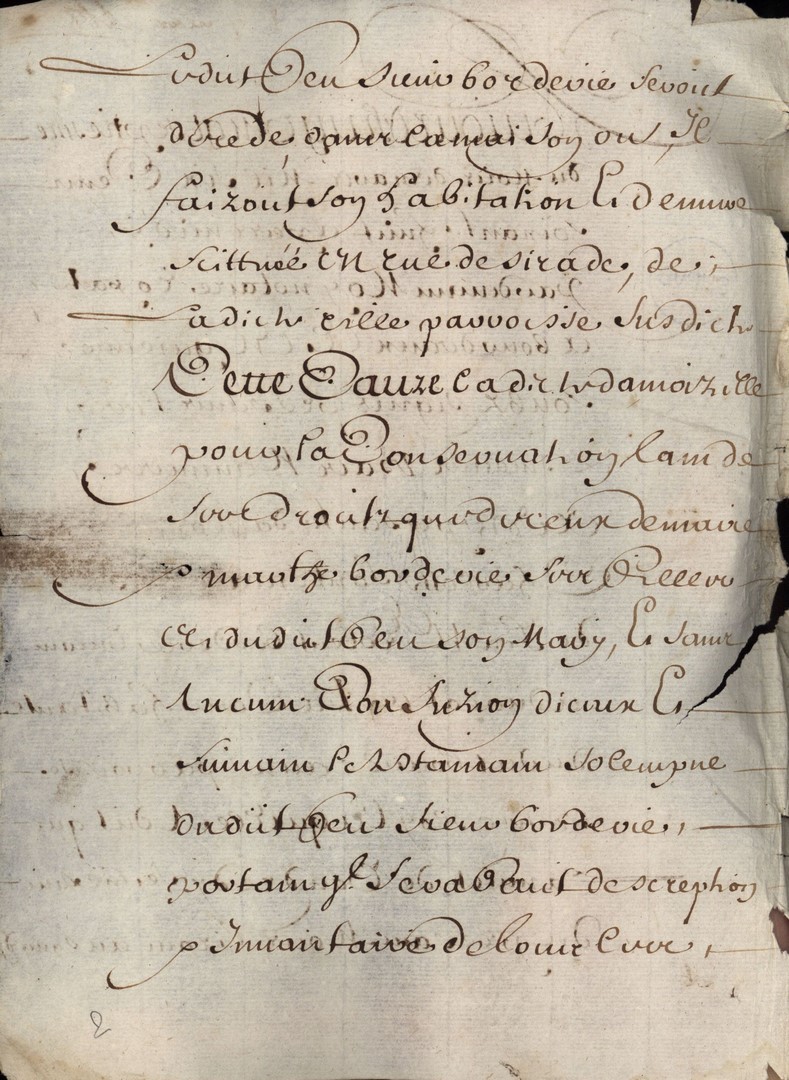 Ledict feu sieur borderie seroit
decedé dans la maison ou, Il
faizoit son habitation Et demure
scittuée En rue desirade, de,
Ladicte ville parroisse susdicte
Cette Cauze Ladicte damoizelle
pour la Conservation tant de
ses droictz que de ceux de marie
marthe borderie sa fille
Et dudict feu son Mary, Et sans
Aucune Confuzion diceux Et
suivant le testamant solempne
dudict feu sieur borderie,
portant q. sera faict descreption
p Innantaire de tour
2